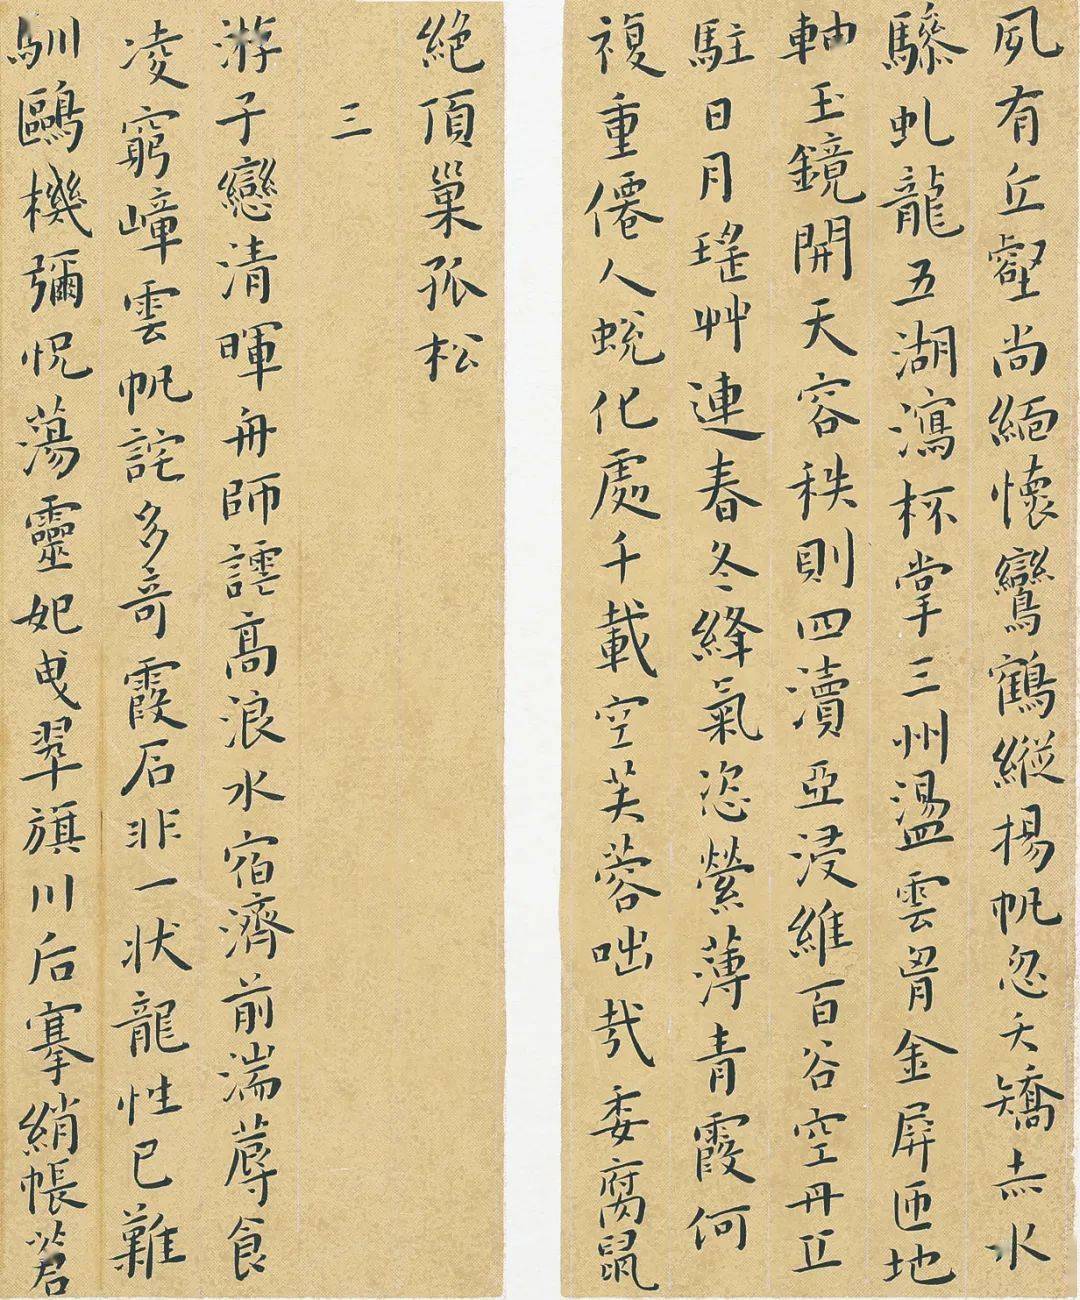 夙有丘壑尚緬懷鸞鶴縱揚帆忽夭矯赤水
驂虬龍五湖瀉杯掌三州盪雲胷金屏匝地
軸玉鏡開天容秩則四瀆亞浸維百谷空丹丘
駐日月瑤艸連春冬絳氣恣縈薄青霞何
複重僊人蛻化處千載空芙蓉咄哉委腐鼠
絕頂巢孤松
三
游子戀清暉舟師謹高浪水宿濟前湍蓐食
凌窮嶂雲帆詫多奇霞石非一狀龍性已難
馴鷗機彌怳蕩靈妃曳翠旗川后搴綃帳若